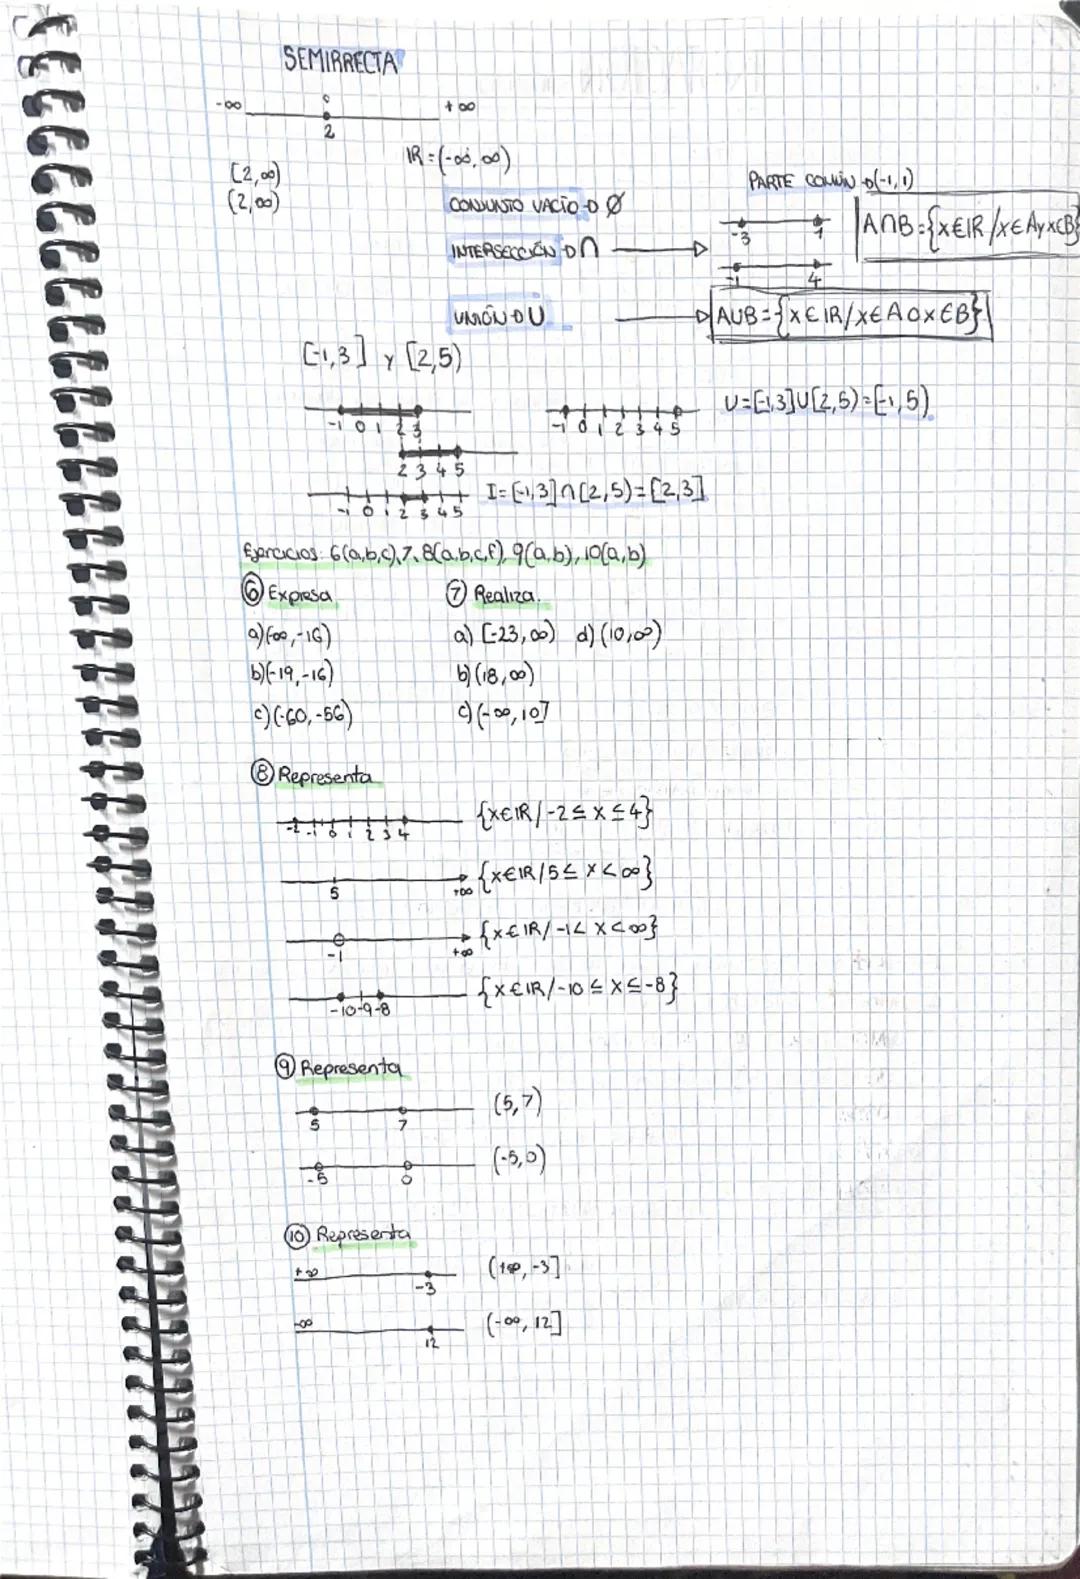 SEMIRRECTA
-∞ 2 +∞
IR = (-∞, ∞)
[2,∞)
(2,∞)
CONJUNTO VACÍO → Ø
PARTE COMÚN → (-1, 1)
INTERSECCIÓN → ∩
-3 1
-1 4
A∩B = {x∈IR / x∈A y x∈B}
UNIÓN → U
AUB = {x∈IR / x∈A o x∈B}
[-1,3] y [2,5)
-1 0 1 2 3
-1 0 1 2 3 4 5
U = [-1,3]U[2,5) = [-1,5)
2 3 4 5
-1 0 1 2 3 4 5
I = [-1,3]∩[2,5) = [2,3]
Ejercicios: 6(a,b,c), 7, 8(a,b,c,f), 9(a,b), 10(a,b)
⑥ Expresa
a) (-∞,-16)
b) (-19,-16)
c) (-60,-56)
⑦ Realiza.
a) [-23,∞) d) (10,∞)
b) (18,∞)
c) (-∞,10]
⑧ Representa
-2 -1 0 1 2 3 4 {x∈IR / -2 ≤ x ≤ 4}
5 +∞ {x∈IR / 5 ≤ x < ∞}
-1 +∞ {x∈IR / -1 < x < ∞}
-10 -9 -8 {x∈IR / -10 ≤ x ≤ -8}
⑨ Representa
5 7 (5,7)
-5 0 (-5,0)
⑩ Representa
+∞ -3 (+∞,-3]
-∞ 12 (-∞,12]